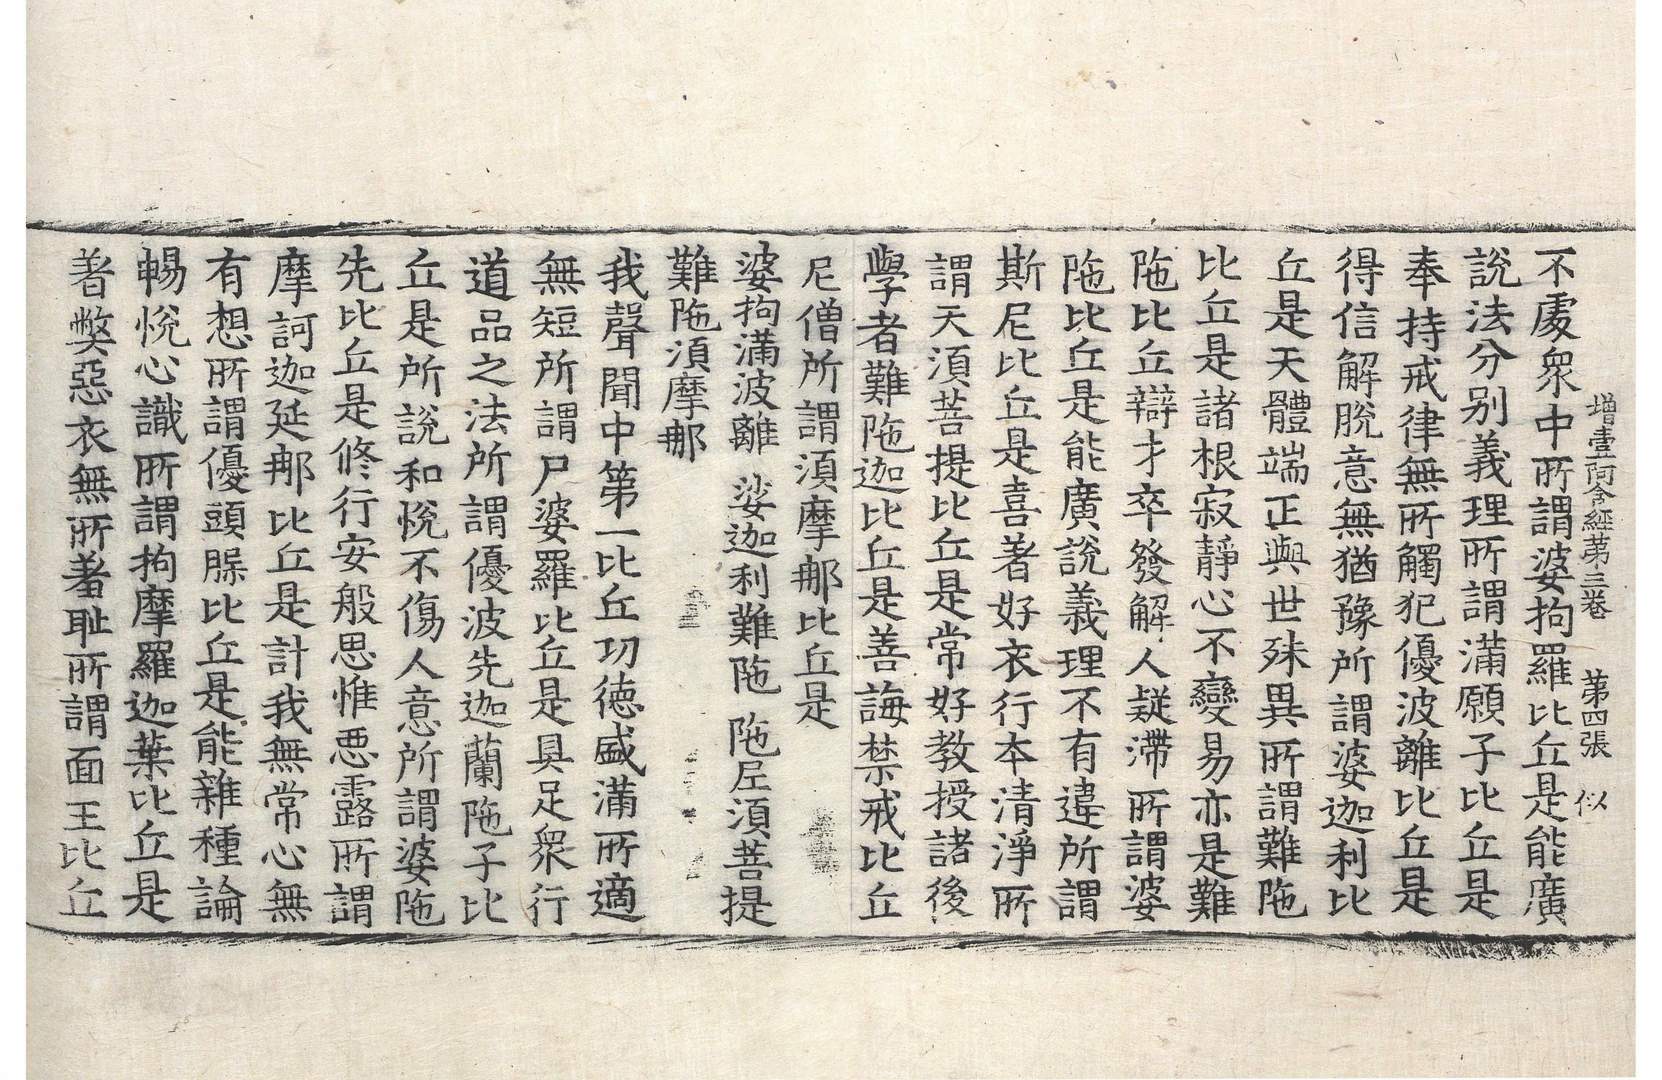 增壹阿含經第三卷 第四張 似
不處衆中所謂婆拘羅比丘是能廣
說法分别義理所謂滿願子比丘是
奉持戒律無所觸犯優波離比丘是
得信解脫意無猶豫所謂婆迦利比
丘是天體端正與世殊異所謂難陁
比丘是諸根寂靜心不變易亦是難
陁比丘辯才卒發解人疑滯所謂婆
陁比丘是能廣說義理不有違所謂
斯尼比丘是喜著好衣行本清淨所
謂天須菩提比丘是常好教授諸後
學者難陁迦比丘是善誨禁戒比丘
尼僧所謂須摩那比丘是
婆拘滿波離 婆迦利難陁 陁尼須菩提
難陁須摩那
我聲聞中第一比丘功德盛滿所適
無短所謂尸婆羅比丘是具足衆行
道品之法所謂優波先迦蘭陁子比
丘是所說和悅不傷人意所謂婆陁
先比丘是修行安般思惟惡露所謂
摩訶迦延那比丘是計我無常心無
有想所謂優頭槃比丘是能雜種論
暢悅心識所謂拘摩羅迦葉比丘是
著弊惡衣無所著耻所謂面王比丘